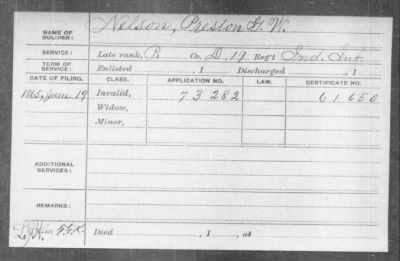 NAME OF SOLDIER: Nelson, Preston G. W.
SERVICE: Late rank, P. Co. D, 19 Reg't Ind. Inf.
TERM OF SERVICE: Enlisted , 1 Discharged , 1
DATE OF FILING. CLASS. APPLICATION NO. LAW. CERTIFICATE NO.
1865, June 19 Invalid, 73 282 61.650
Widow,
Minor,
ADDITIONAL SERVICES:
REMARKS:
Died , 1 , at